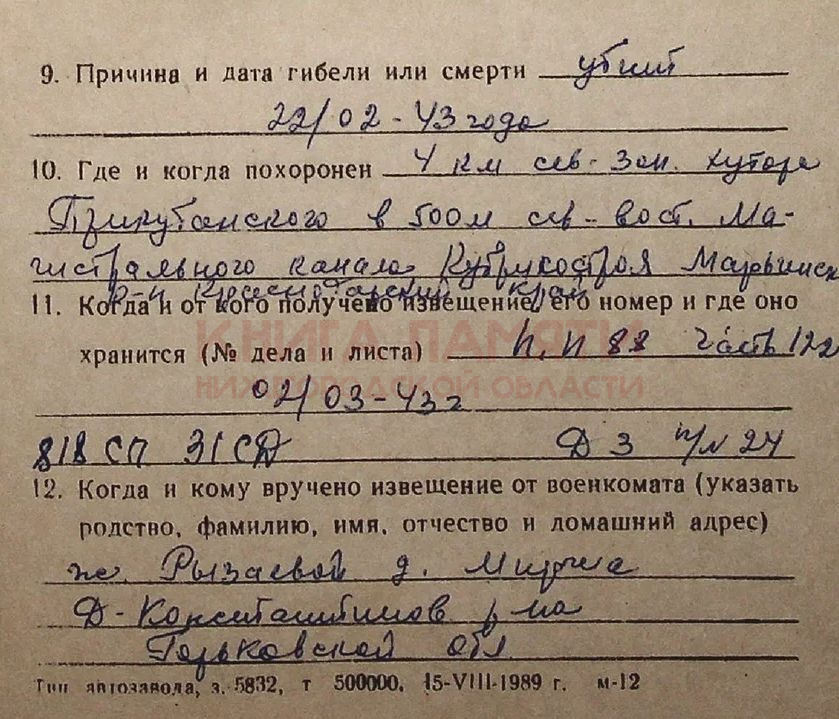 9. Причина и дата гибели или смерти убит
22/02-43 года
10. Где и когда похоронен 4 км сев-зап. хутора
Прикубанского в 500 м сев-вост. Ма-
гистрального канала Марьинск
р-н Краснодарский край
11. Когда и от кого получено извещение, его номер и где оно
хранится (№ дела и листа) п.п 88 часть 122
02/03-43 г
818 СП 31 СД Д 3 п/№ 24
12. Когда и кому вручено извещение от военкомата (указать
родство, фамилию, имя, отчество и домашний адрес)
же. Рызаевой д.
Д-Константинов р-на
Горьковской обл
Тип. автозавода, з. 5832, т 500000, 15-VIII-1989 г. м-12
КНИГА ПАМЯТИ
НИЖЕГОРОДСКОЙ ОБЛАСТИ